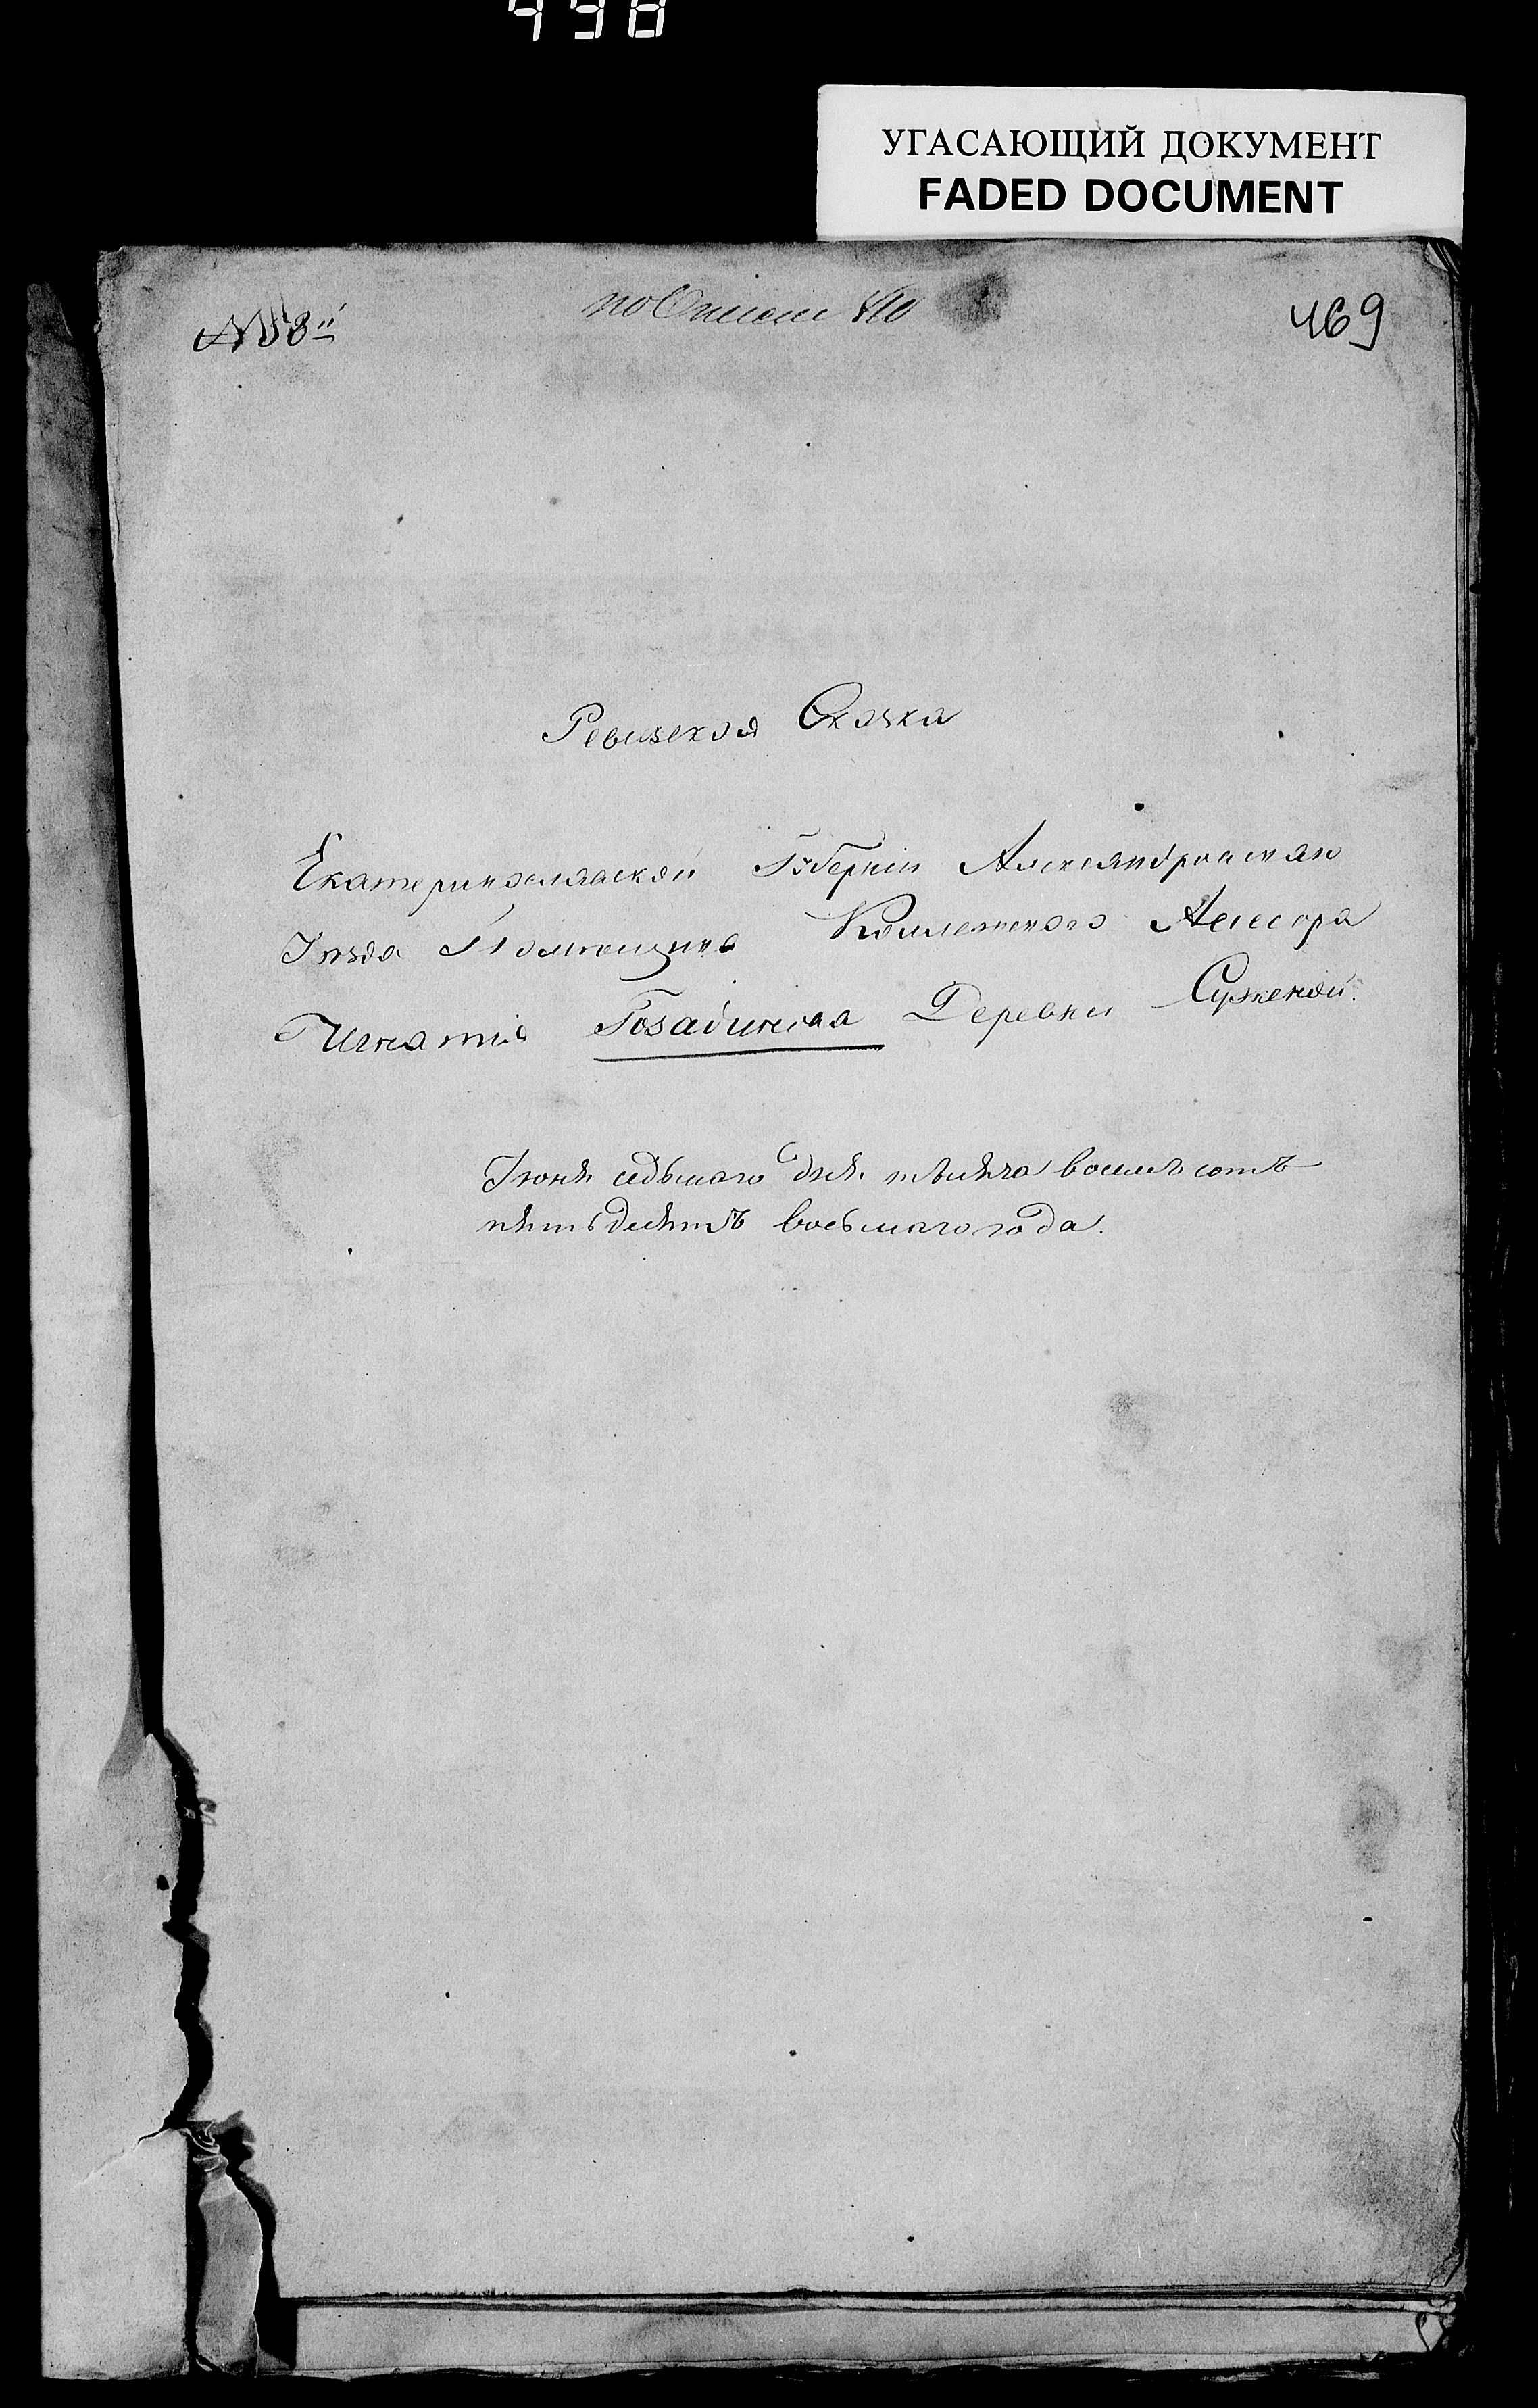 498
УГАСАЮЩИЙ ДОКУМЕНТ
FADED DOCUMENT
№ 8й
по Описи 810
469
Ревизская Сказка
Екатеринославской Губернии Александровскаго
Уезда Помещика Коллежского Асессора
Игнатія Гозадинова Деревни Суженой.
Іюня седьмаго дня тысяча восемь сотъ
пятьдесятъ восьмаго года.